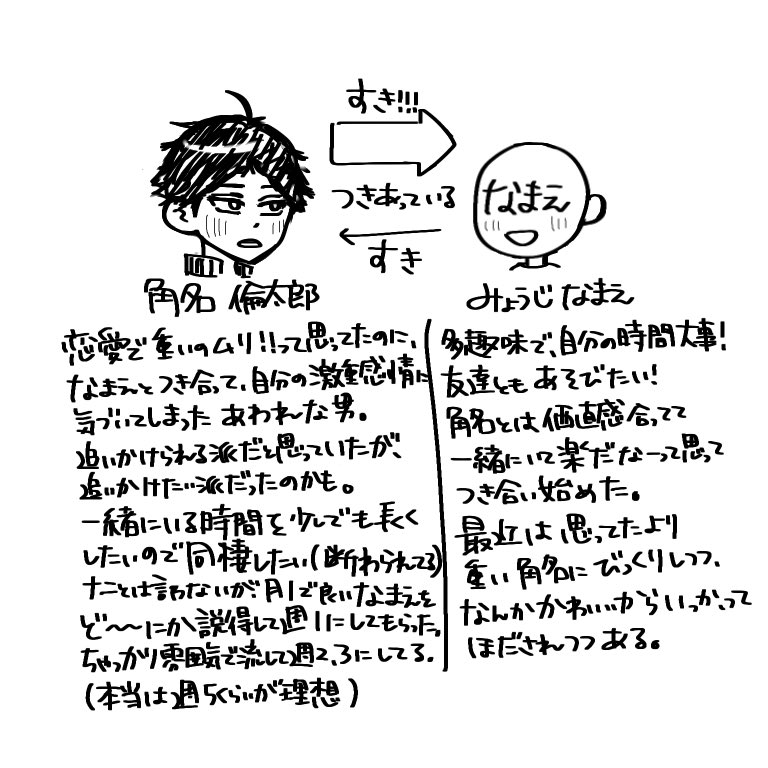 すき!!!
つきあっている
すき
なまえ
角名 倫太郎
恋愛で重いのムリ!!って思ってたのに、
なまえとつき合って、自分の激重感情に
気づいてしまった あわれな男。
追いかけられる派だと思っていたが、
追いかけたい派だったのかも。
一緒にいる時間を少しでも長く
したいので同棲したい(断わられてる)
ナニとは言わないが、月1で良いなまえを
ど〜〜にか説得して週1にしてもらった。
ちゃっかり雰囲気で流して週2、3にしてる。
(本当は週5くらいが理想)
みょうじ なまえ
多趣味で、自分の時間大事!
友達ともあそびたい!
角名とは価値感合ってて
一緒にいて楽だなーって思って
つき合い始めた。
最近は思ってたより
重い角名にびっくりしつつ、
なんかかわいいからいっかって
ほだされつつある。